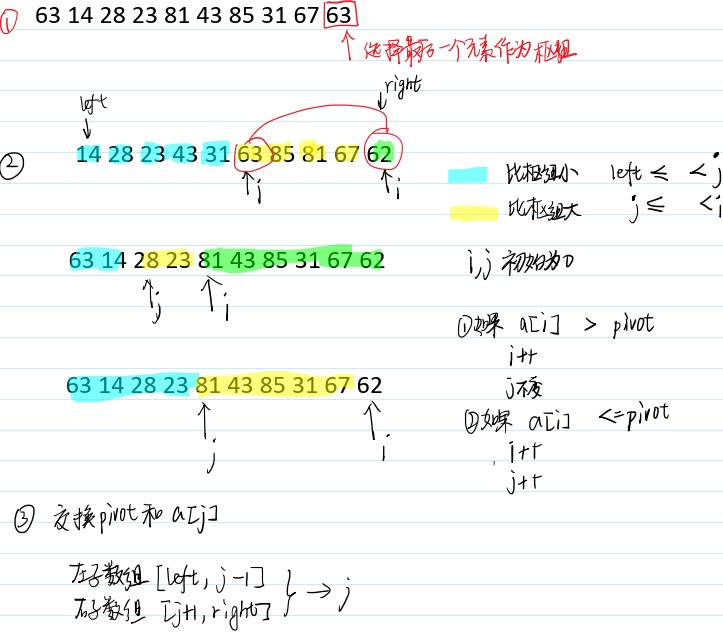 ① 63 14 28 23 81 43 85 31 67 63
选择最后一个元素作为枢纽
left
right
② 14 28 23 43 31 63 85 81 67 62
j
i
比枢纽小 left ≤ < j
比枢纽大 j ≤ < i
63 14 28 23 81 43 85 31 67 62
j
i
i,j 初始为0
①如果 a[i] > pivot
i++
j不变
63 14 28 23 81 43 85 31 67 62
j
i
②如果 a[i] <=pivot
i++
j++
③ 交换pivot和a[j]
左子数组 [left, j-1]
右子数组 [j+1, right] } → j